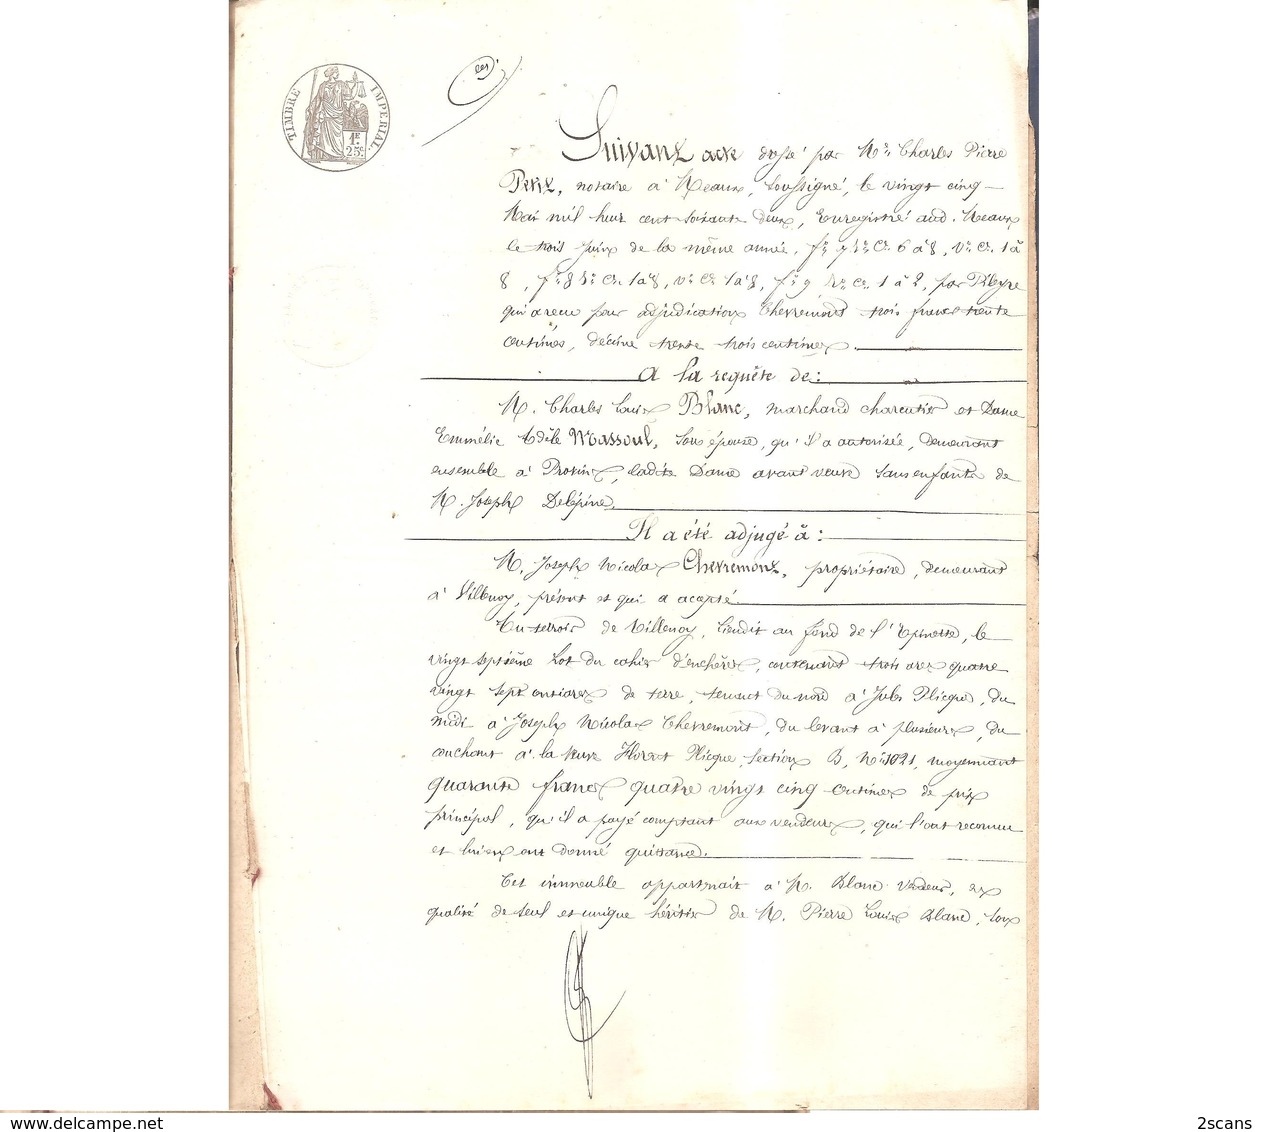 TIMBRE IMPERIAL.
1F.
25c.
Suivant acte dressé par Me Charles Pierre
Petit, notaire à Meaux, soussigné, le vingt cinq
Mai mil huit cent soixante deux, Enregistré aud. Meaux
le trois Juin de la même année, fo 7 Ro Ces 6 à 8, Vo Ces 1 à
8, fo 8 Ro Ces 1 à 8, vo Ces 1 à 8, fo 9 Ro Ces 1 à 2, par
qui a reçu pour adjudication Chevremont trois francs trente
centimes, décime trente trois centimes.
A la requête de :
M. Charles Louis Blanc, marchand charcutier et Dame
Emmélie Adèle Massoul, son épouse, qu'il a autorisée, demeurant
ensemble à Provins, ladite Dame avant veuve sans enfants de
M. Joseph Delépine.
Il a été adjugé à :
M. Joseph Nicolas Chevremont, propriétaire, demeurant
à Villenoy, présent et qui a accepté.
Un terroir de Villenoy, lieudit au fond de l'Epinette, le
vingt septième lot du cahier d'enchères, contenant trois ares quatre
vingt sept centiares de terre, tenant du nord à Jules Plicque, du
midi à Joseph Nicolas Chevremont, du levant à plusieurs, du
couchant à la veuve Florent Plicque, section B, No 1021, moyennant
quarante francs quatre vingt cinq centimes de prix
principal, qu'il a payé comptant aux vendeurs, qui l'ont reconnu
et lui en ont donné quittance.
Cet immeuble appartenait à M. Blanc vendeur, en
qualité de seul et unique héritier de M. Pierre Louis Blanc, son
www.delcampe.net
2scans